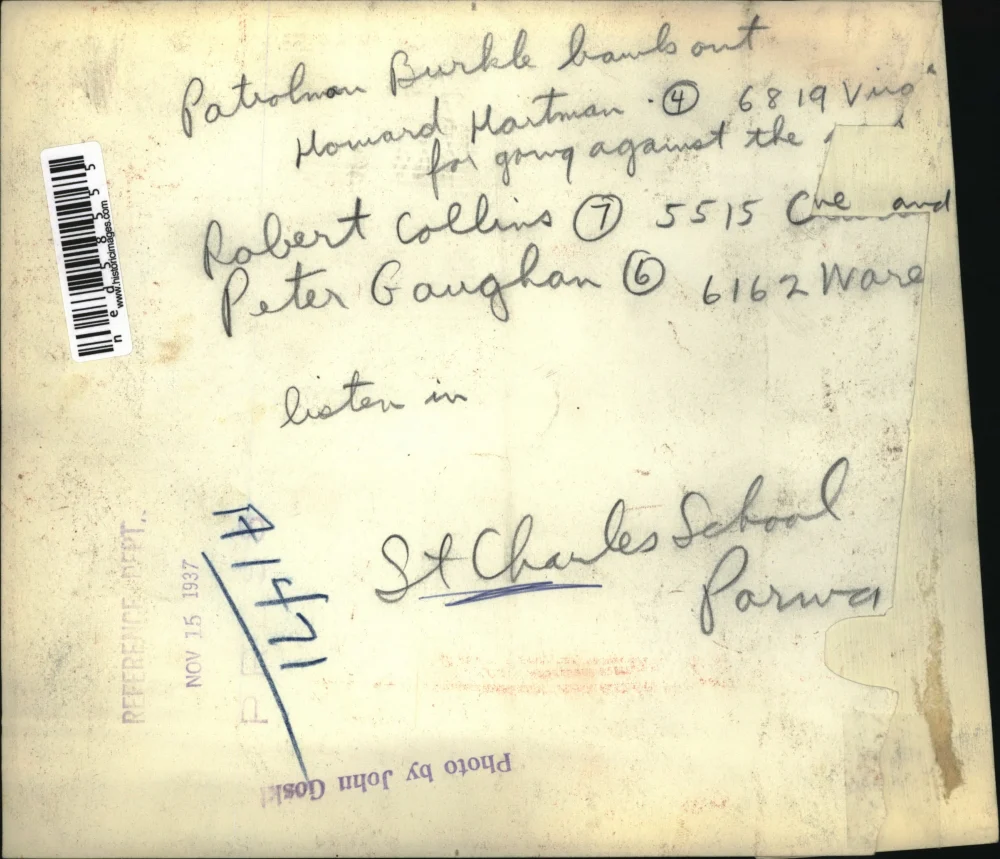 Patrolman Burkle bawls out
Howard Hartman ④ 6819 Virg
for going against the
Robert Collins ⑦ 5515 and
Peter Gaughan ⑥ 6162 Ware
listen in
St Charles School
Parma
REFERENCE DEPT.
NOV 15 1937
Photo by John
www.historicimages.com
ned58555